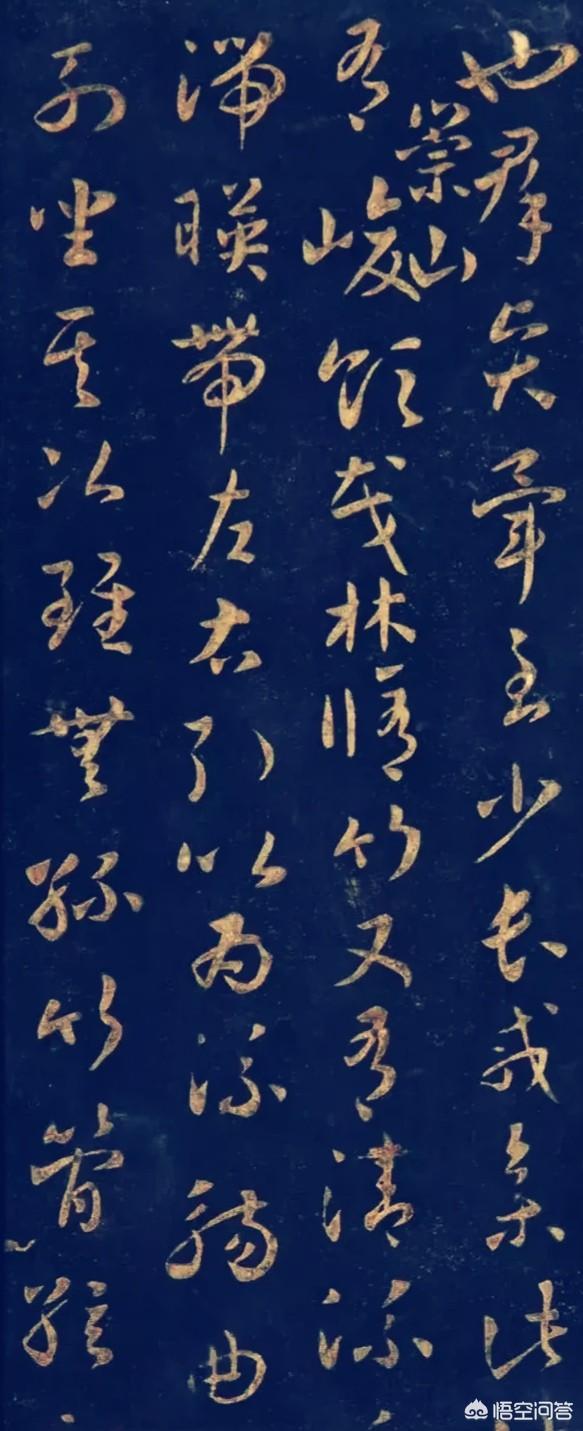 也羣賢畢至少長咸集此
有崇山峻領茂林脩竹又有清流
湍暎帶左右引以為流觴曲
列坐其次雖無絲竹管絃
悟空问答